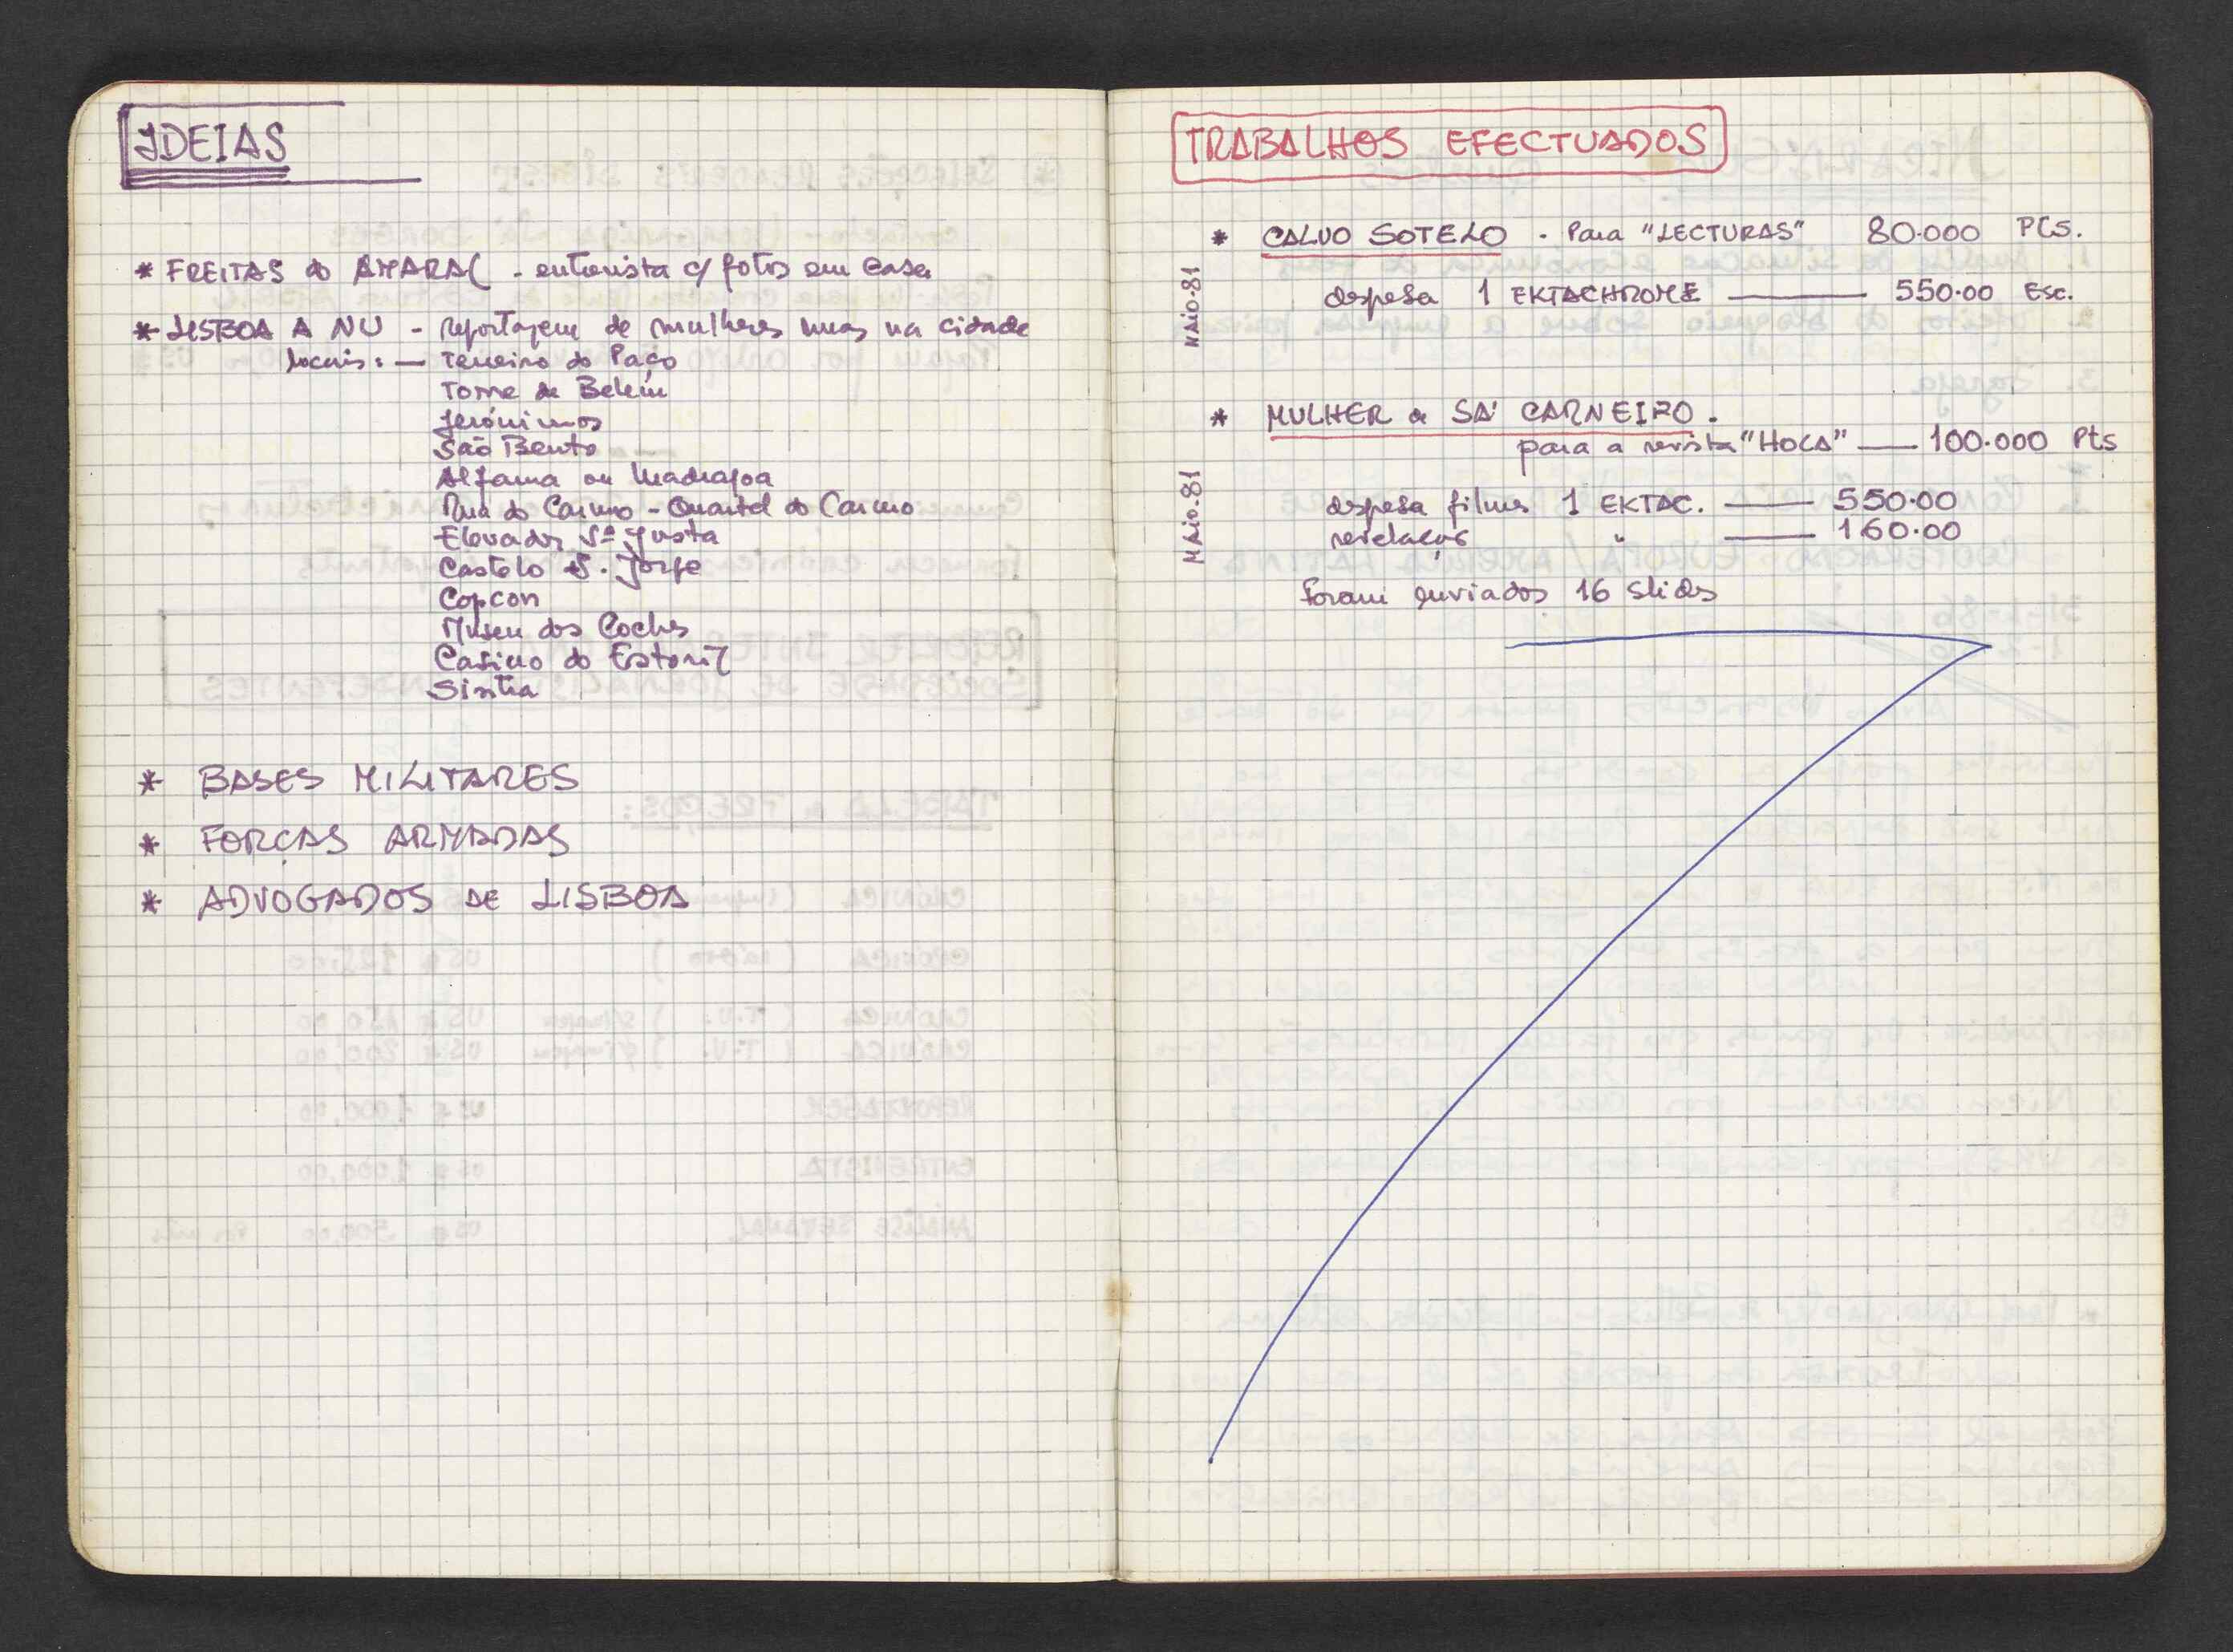 IDEIAS
* FREITAS do AMARAL - entrevista c/ fotos em casa
* LISBOA A NU - reportagem de mulheres nuas na cidade
locais: — Terreiro do Paço
Torre de Belém
Jerónimos
São Bento
Alfama ou Madragoa
Rua do Carmo - Quartel do Carmo
Elevador Sta Justa
Castelo S. Jorge
Copcon
Museu dos Coches
Casino do Estoril
Sintra
* BASES MILITARES
* FORÇAS ARMADAS
* ADVOGADOS DE LISBOA
TRABALHOS EFECTUADOS
MAIO.81
* CALVO SOTELO - Para "LECTURAS" 80.000 PTS.
despesa 1 EKTACHROME — 550.00 Esc.
MAIO.81
* MULHER de SÁ CARNEIRO.
para a revista "HOLA" — 100.000 Pts
despesa filmes 1 EKTAC. — 550.00
revelações " — 160.00
Foram enviados 16 slides